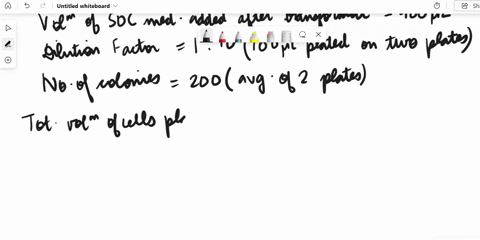 Untitled whiteboard
Share
Vol^m of SOC med. added after
Dilution Factor = 1:10 (100μL plated on two plates)
No. of colonies = 200 (avg. of 2 plates)
Tot. vol^m of cells pla